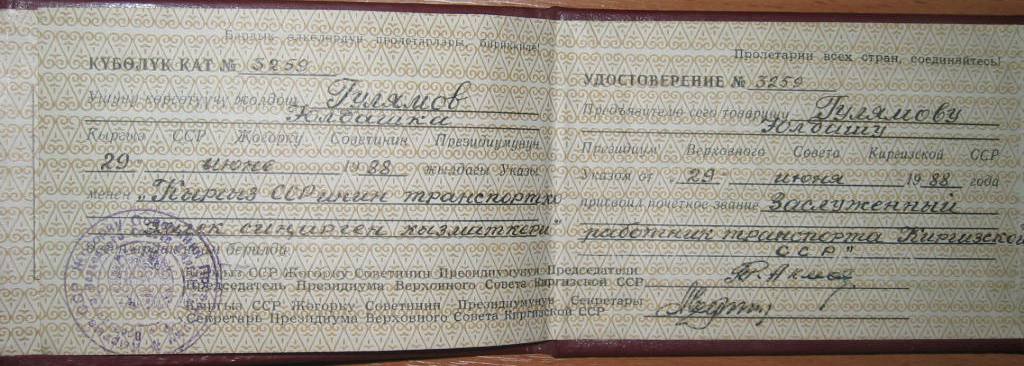 Бардык өлкөлөрдүн пролетарлары, бириккиле!
КҮБӨЛҮК КАТ № 3259
Ушуну көрсөтүүчү жолдош Гулямов
Юлбашка
Кыргыз ССР Жогорку Советинин Президиумунун
29 июне 1988 жылдагы Указы
менен „Кыргыз ССРинин транспортко
эмгек сиңирген кызматкери"
берилди
Кыргыз ССР Жогорку Советинин Президиумунун Председатели
Председатель Президиума Верховного Совета Киргизской ССР
Кыргыз ССР Жогорку Советинин Президиумунун Секретары
Секретарь Президиума Верховного Совета Киргизской ССР
Пролетарии всех стран, соединяйтесь!
УДОСТОВЕРЕНИЕ № 3259
Предъявителю сего товарищу Гулямову
Юлбашу
Президиум Верховного Совета Киргизской ССР
Указом от „29" июня 1988 года
присвоил почетное звание „Заслуженный
работник транспорта Киргизской
ССР"